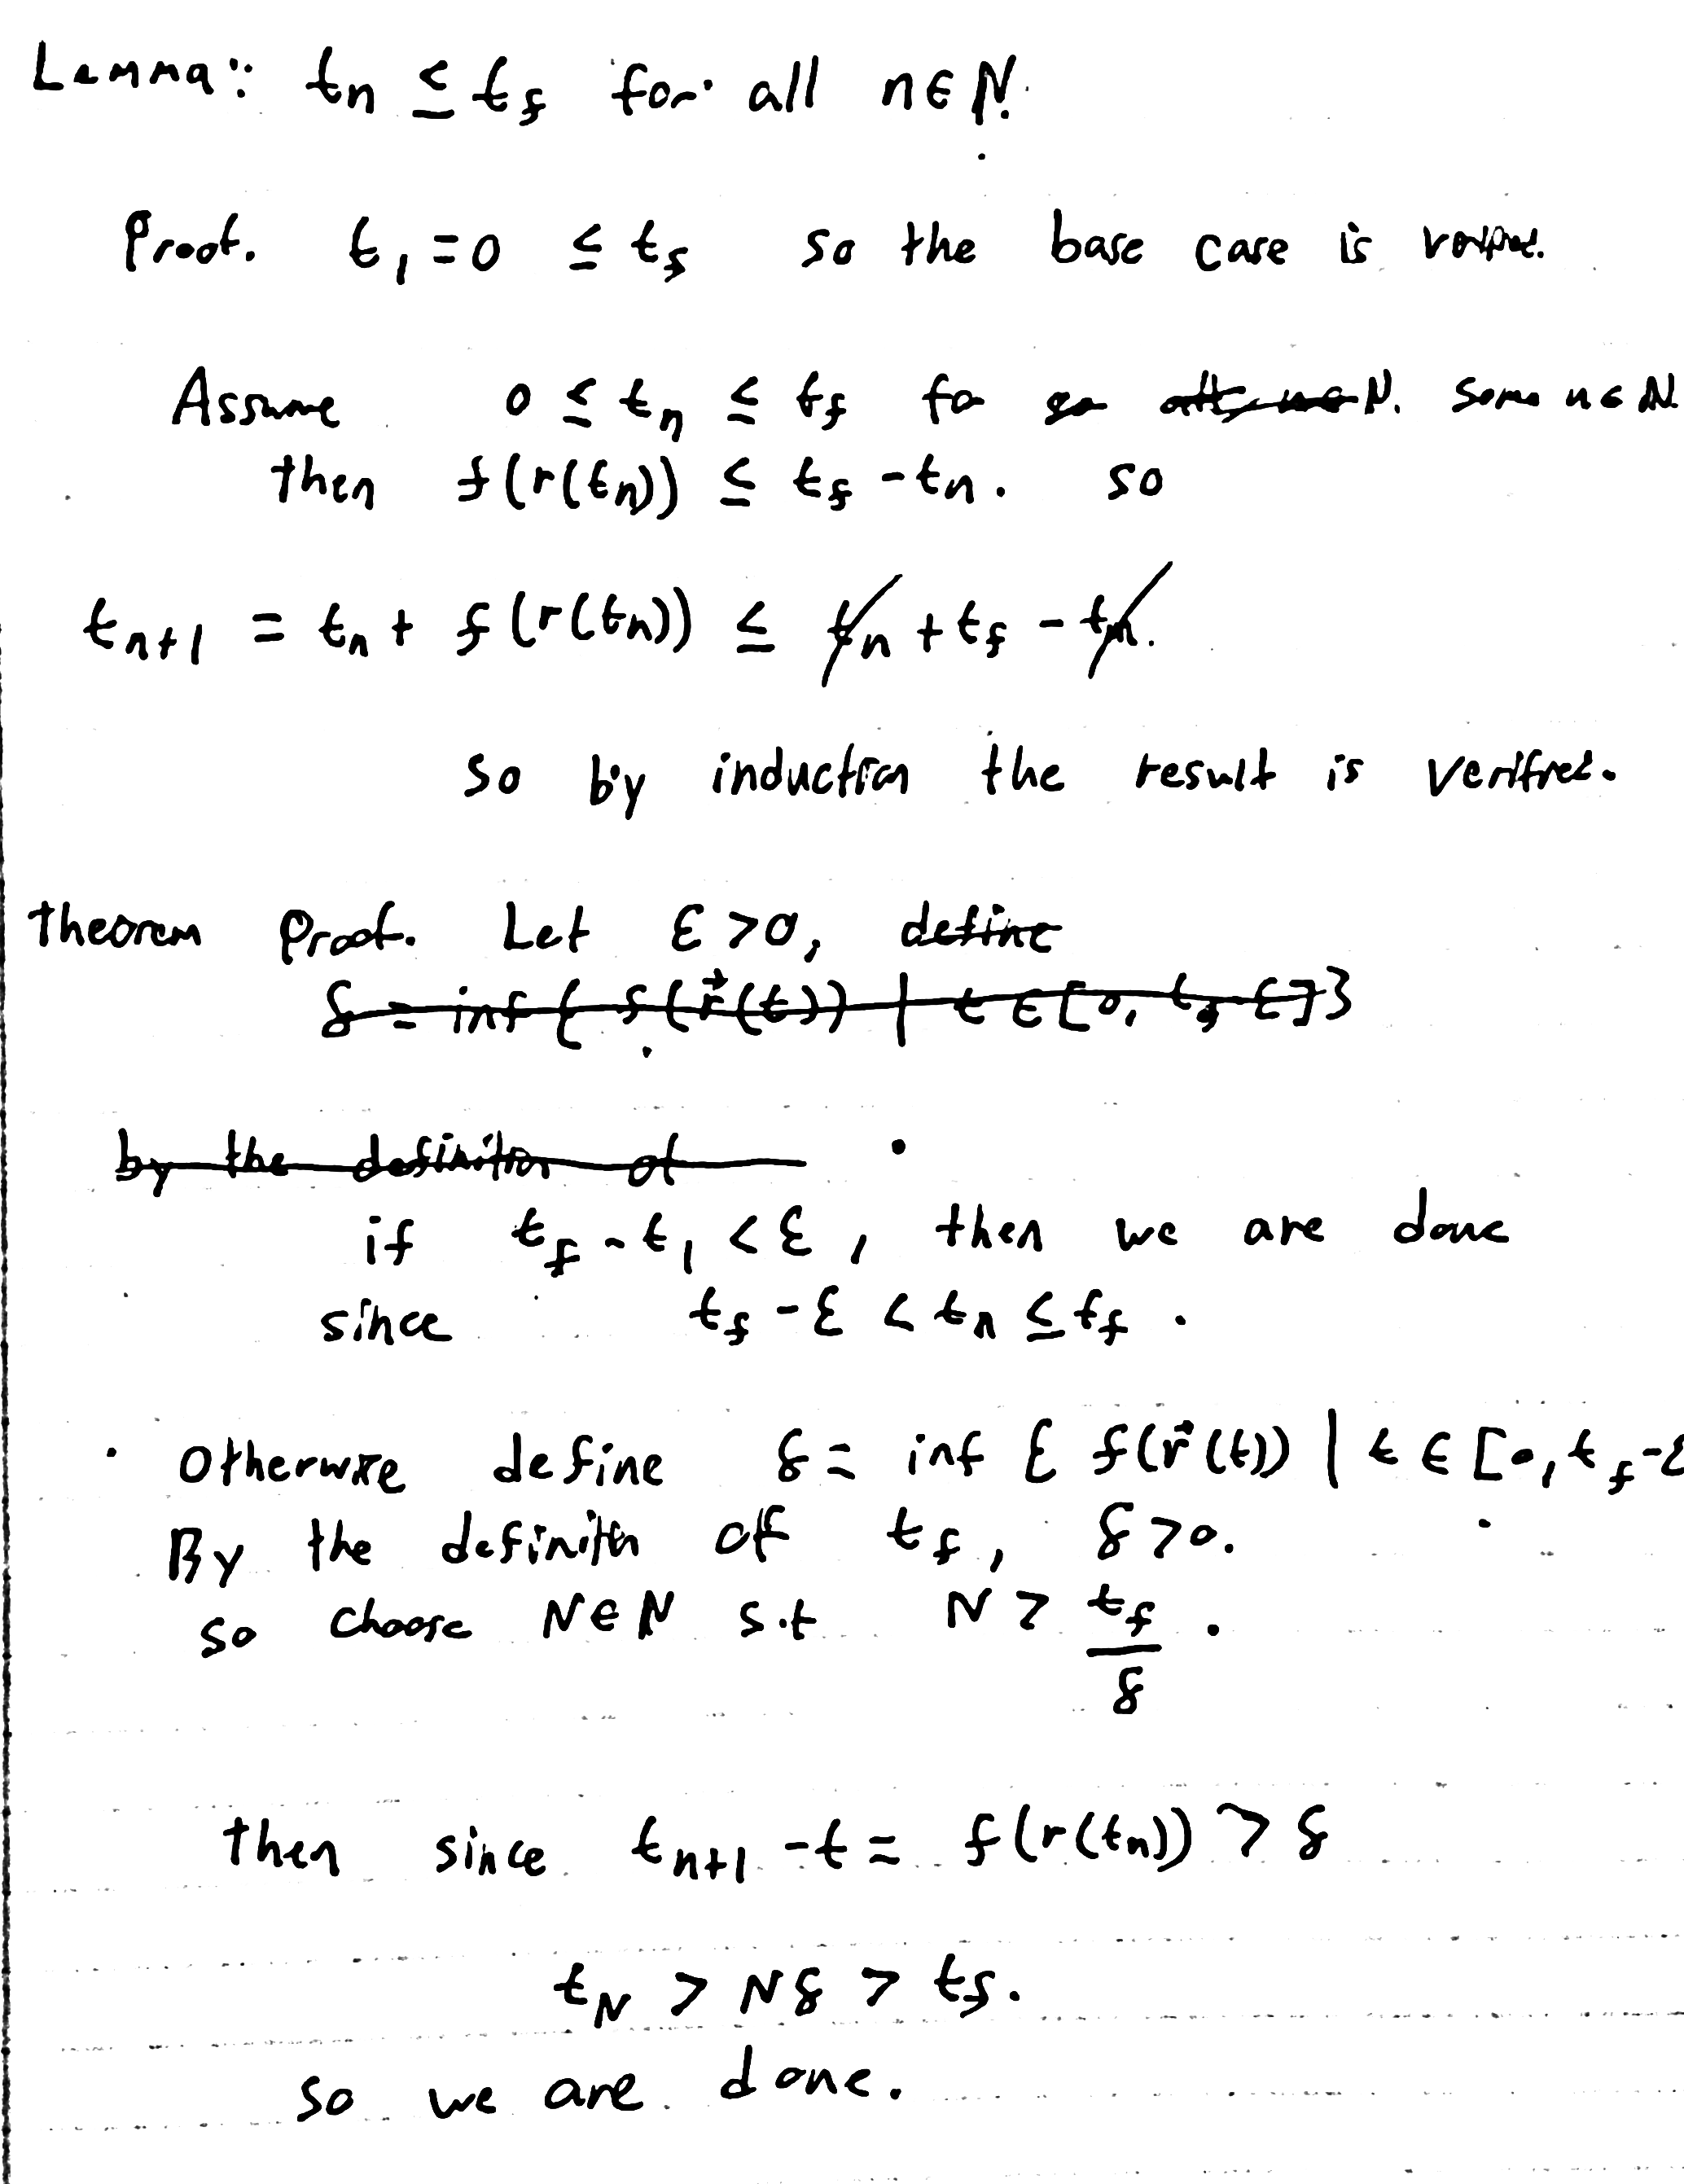 Lemma: t_n ≤ t_f for all n∈ℕ.
Proof. t_1 = 0 ≤ t_f so the base case is
Assume 0 ≤ t_n ≤ t_f fo some n∈ℕ.
then f(r(t_n)) ≤ t_f - t_n. so
t_{n+1} = t_n + f(r(t_n)) ≤ t_n + t_f - t_n.
so by induction the result is verified.
theorem Proof. Let ε > 0, define
δ = inf { f(r⃗(t)) | t ∈ [0, t_f - ε]}
by the definition of
if t_f - t_1 < ε, then we are done
since t_f - ε < t_n ≤ t_f.
Otherwise define δ = inf { f(r⃗(t)) | t ∈ [0, t_f - ε
By the definition of t_f, δ > 0.
so choose N∈ℕ s.t N > t_f / δ.
then since t_{n+1} - t = f(r(t_n)) > δ
t_N > Nδ > t_f.
so we are done.